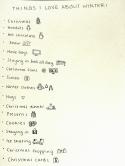 THINGS I LOVE ABOUT WINTER!
- Christmas
- Hot chocolate
- Snow
- Movie days
- Staying in bed all day
- Christmas films
- Scarves
- Winter clothes
- Hugs
- Christmas dinner
- Presents
- Cookies
- Staying in
- Ice skating
- Christmas shopping
- Christmas cards